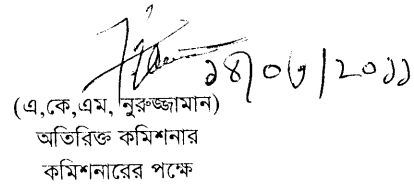 ১৪/০৬/২০১১
(এ,কে,এম, নুরুজ্জামান)
অতিরিক্ত কমিশনার
কমিশনারের পক্ষে